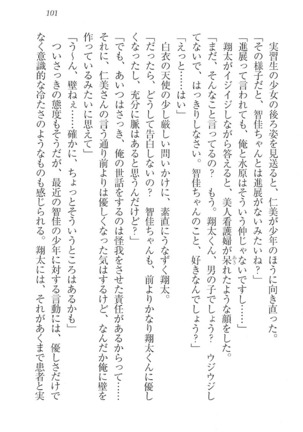 101
実習生の少女の後ろ姿を見送ると、仁美が少年のほうに向き直った。
「その様子だと、智佳ちゃんとは進展がないみたいね？」
「進展って言われても、俺と水原はそういう仲じゃないですし……」
翔太がイジイジしながら答えると、美人看護婦が呆れたような顔をした。
「まだ、そんなこと言ってるの？　もう。翔太くん、男の子でしょう？　ウジウジし
てないで、はっきりしなさい。智佳ちゃんのこと、好きなんでしょう？」
「えっと……はい」
白衣の天使の少し厳しい問いかけに、素直にうなずく翔太。
「だったら、どうして告白しないの？　智佳ちゃんも、前よりかなり翔太くんに優し
くなったし、充分に脈はあると思うんだけど？」
「でも、あいつはさっき、俺の世話をするのは怪我をさせた責任があるからって……
それに、仁美さんの言う通り前よりは優しくなった気はするけど、なんだか俺に壁を
作っているみたいに思えて」
「う〜ん、壁ねぇ……確かに、ちょっとそういうところはあるかも」
ついさっきの態度もそうだが、最近の智佳の少年に対する言動には、優しさだけで
なく意識的な冷たさのようなものも感じられる。翔太には、それがあくまで患者と実